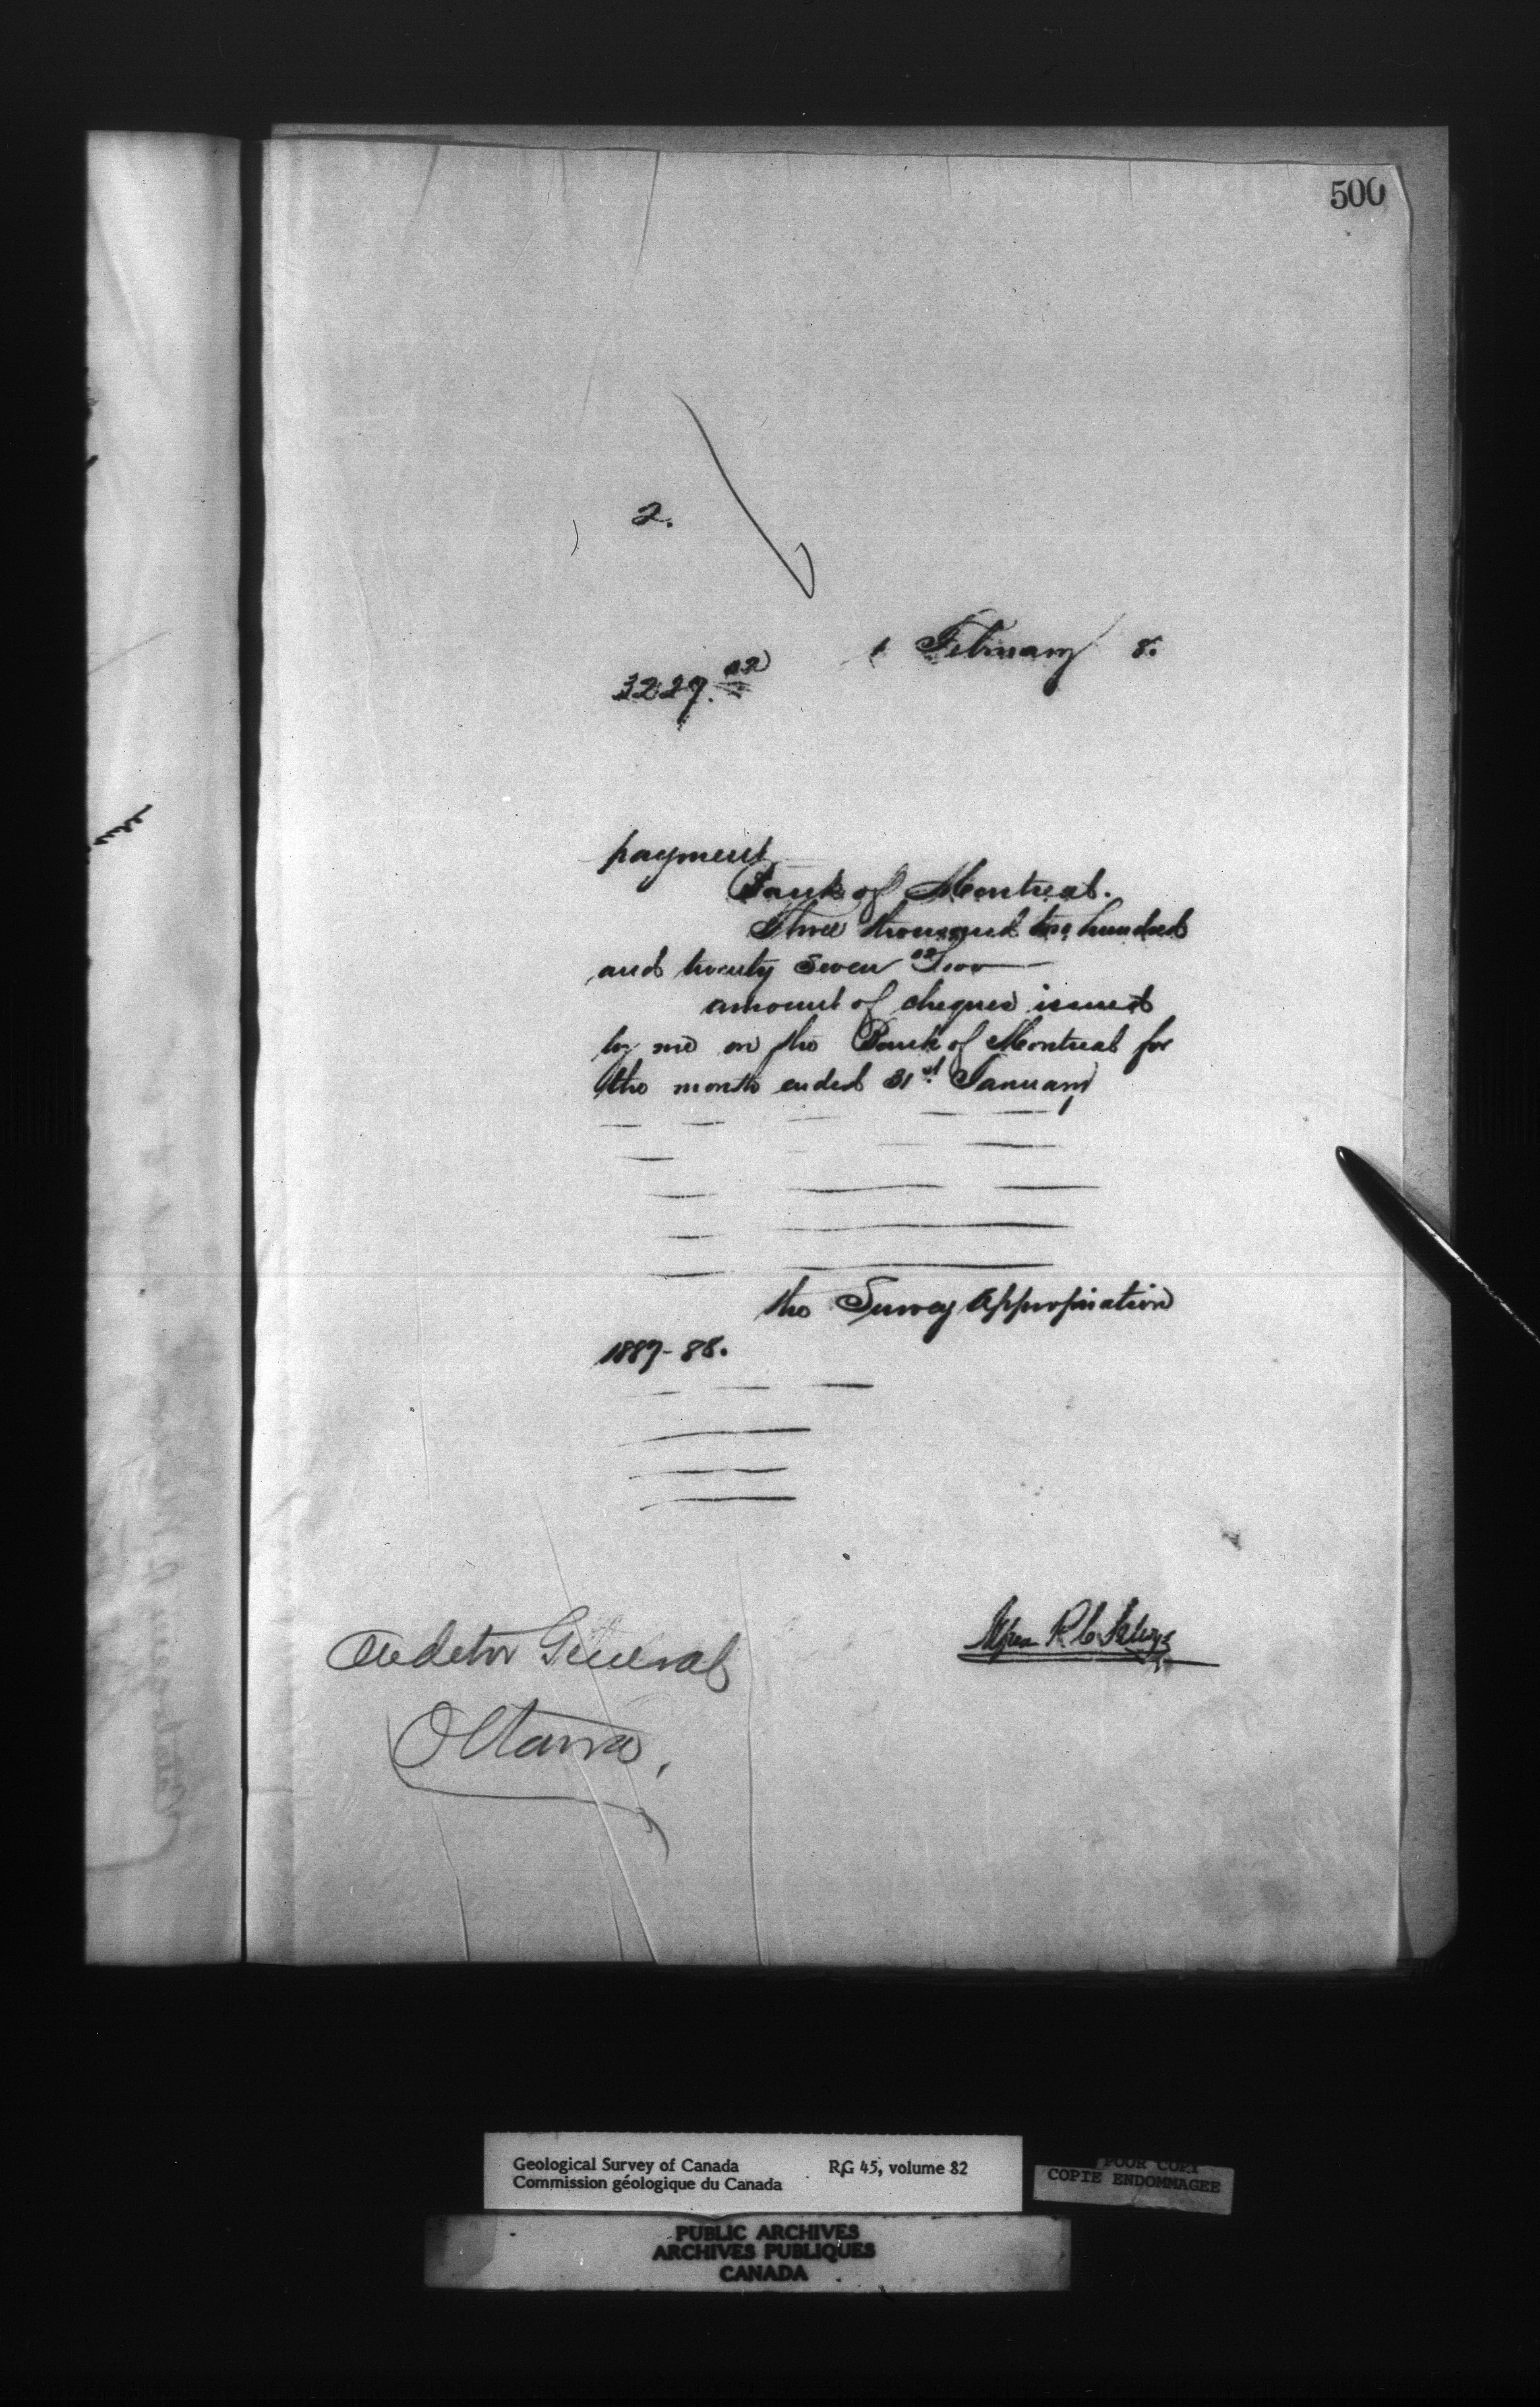 500
2.
1 February 8.
3227.02
payment
Bank of Montreal.
Three thousand two hundred
and twenty seven 02/100
amount of cheques issued
by me on the Bank of Montreal for
the month ended 31st January
the Survey Appropriation
1887-88.
Auditor General
Ottawa,
Geological Survey of Canada RG 45, volume 82
Commission géologique du Canada
POUR COPY
COPIE ENDOMMAGEE
PUBLIC ARCHIVES
ARCHIVES PUBLIQUES
CANADA